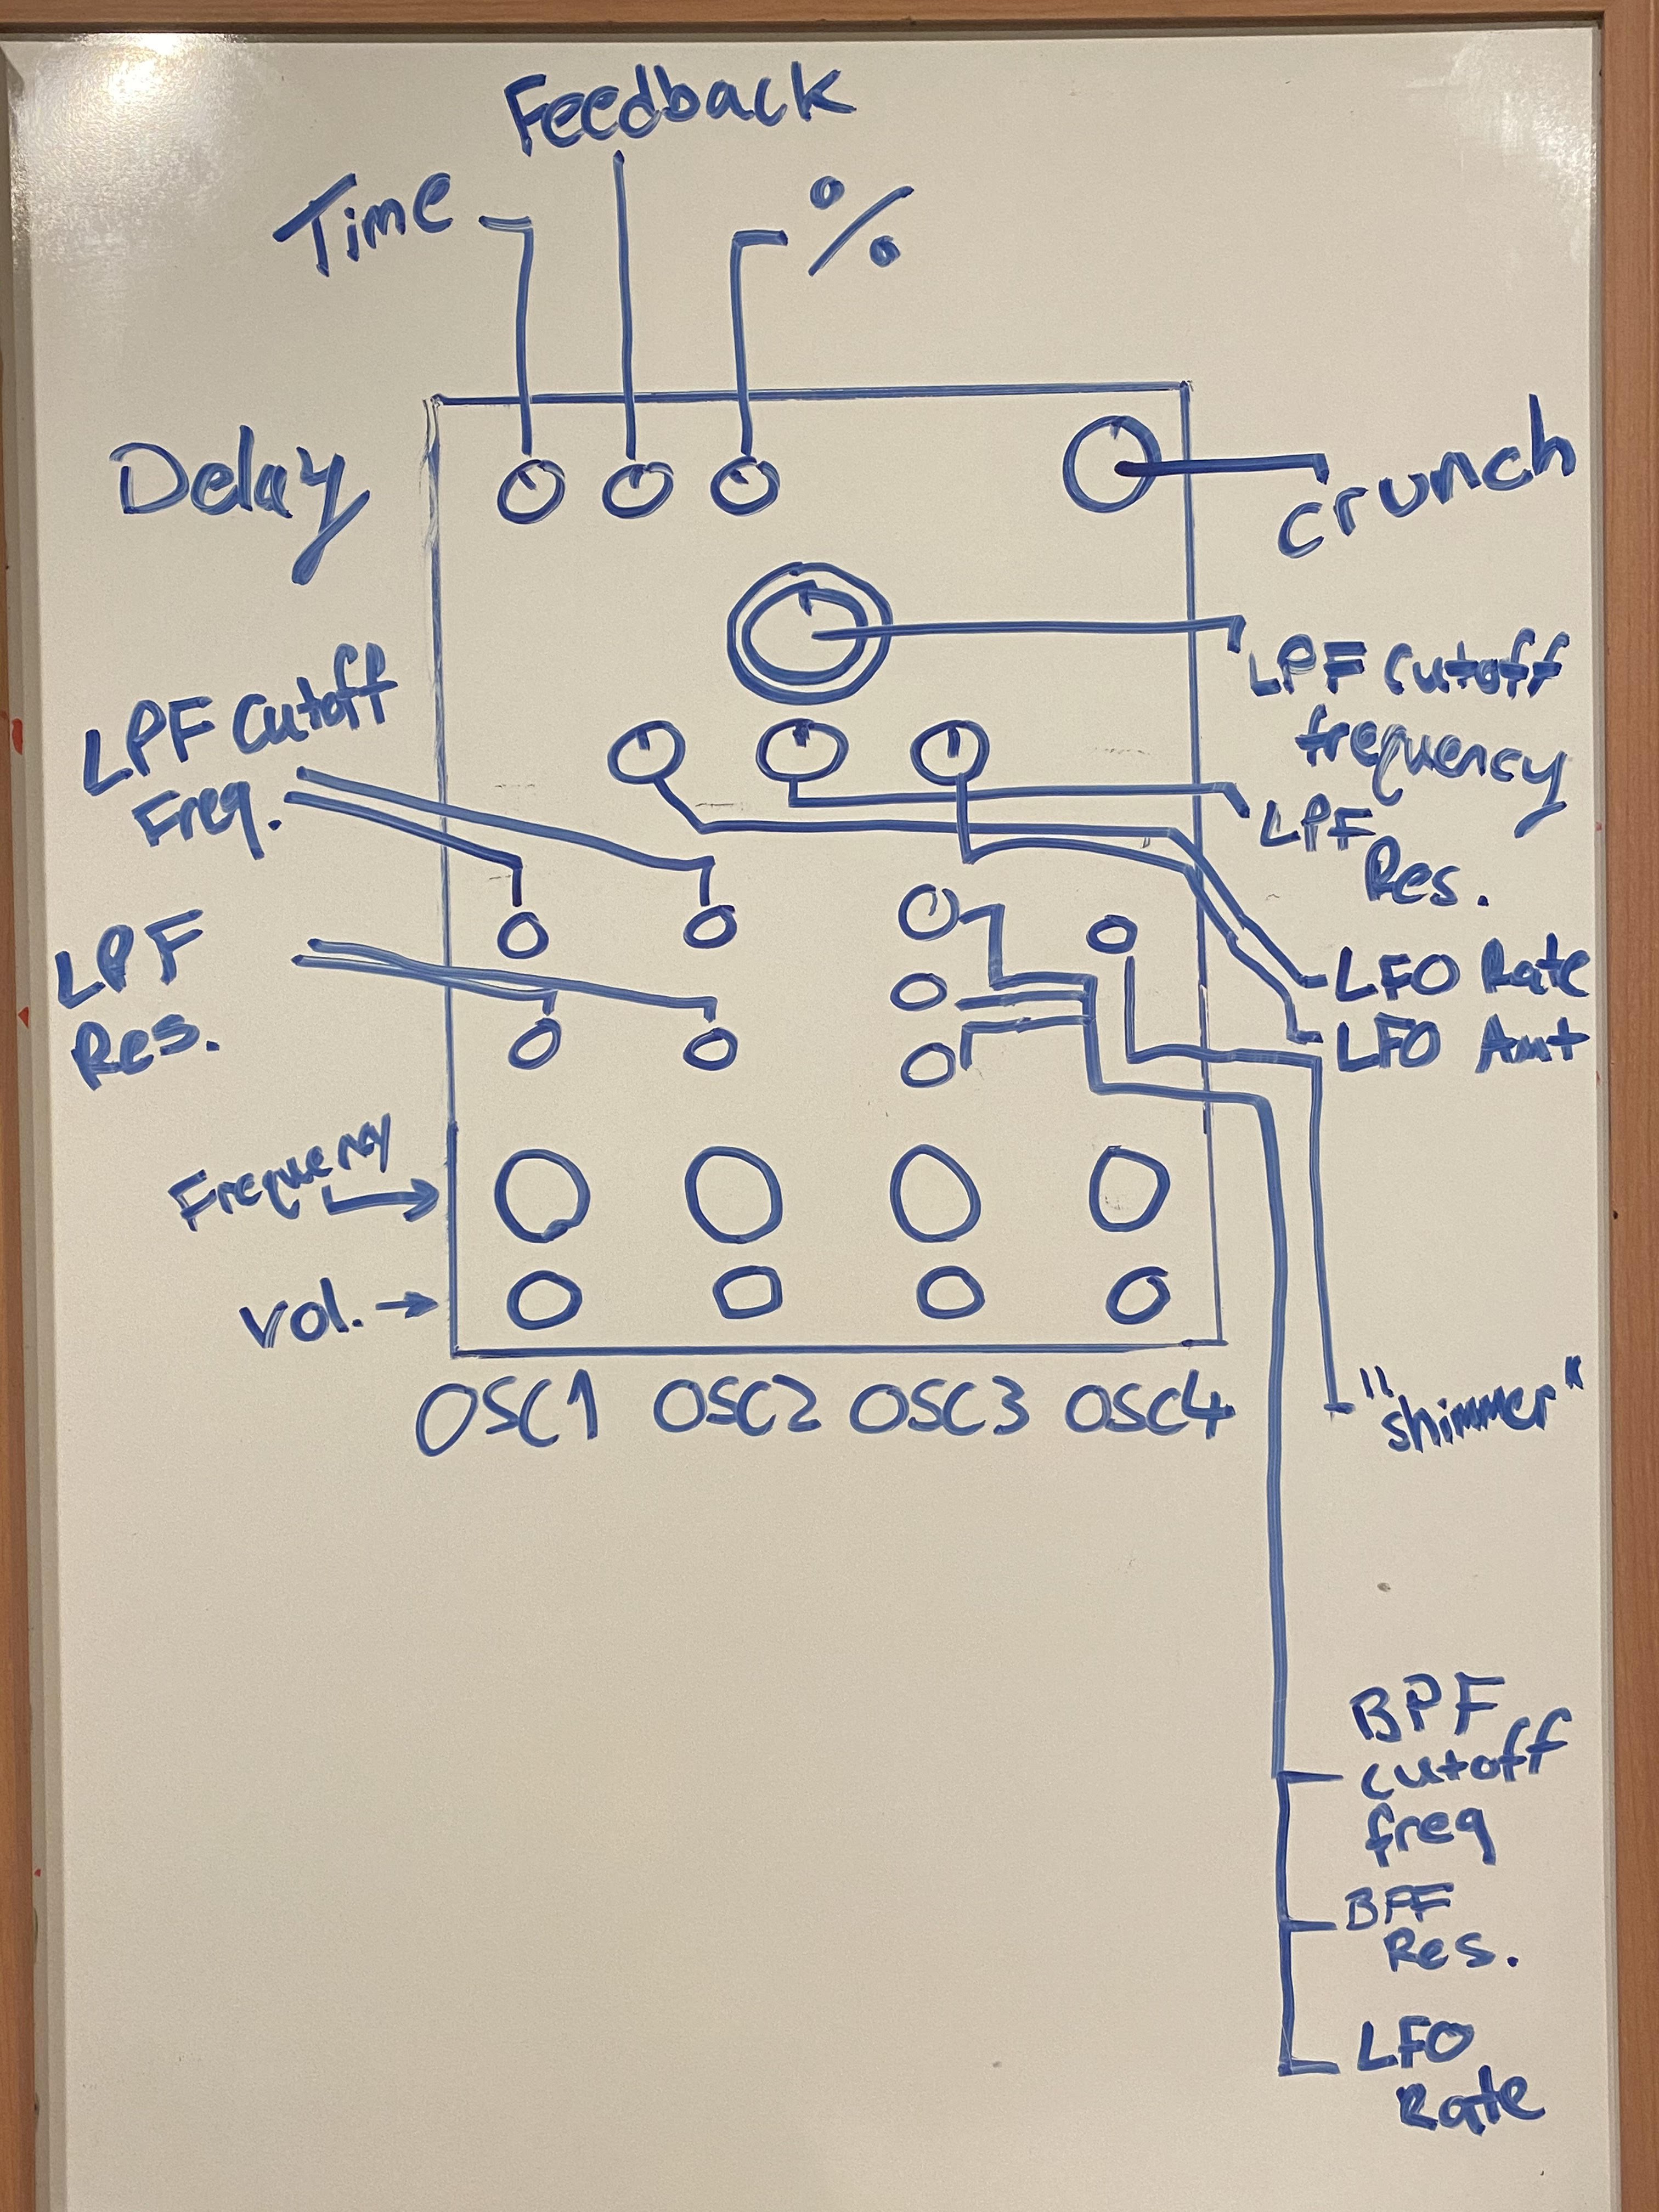 Feedback
Time
%
Delay
Crunch
LPF Cutoff
frequency
LPF Cutoff
Freq.
LPF
Res.
LPF
Res.
LFO Rate
LFO Amt
Frequency
Vol.
OSC1 OSC2 OSC3 OSC4
"shimmer"
BPF
cutoff
freq
BPF
Res.
LFO
Rate